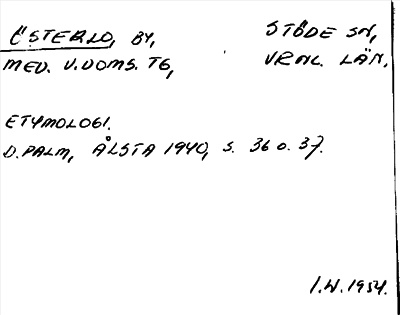 ÖSTERLO, BY, STÖDE SN,
MED. V. DOMS. TG, VRNL. LÄN.
ETYMOLOGI.
D. PALM, ÅLSTA 1940, S. 36 O. 37.
I.W. 1954.